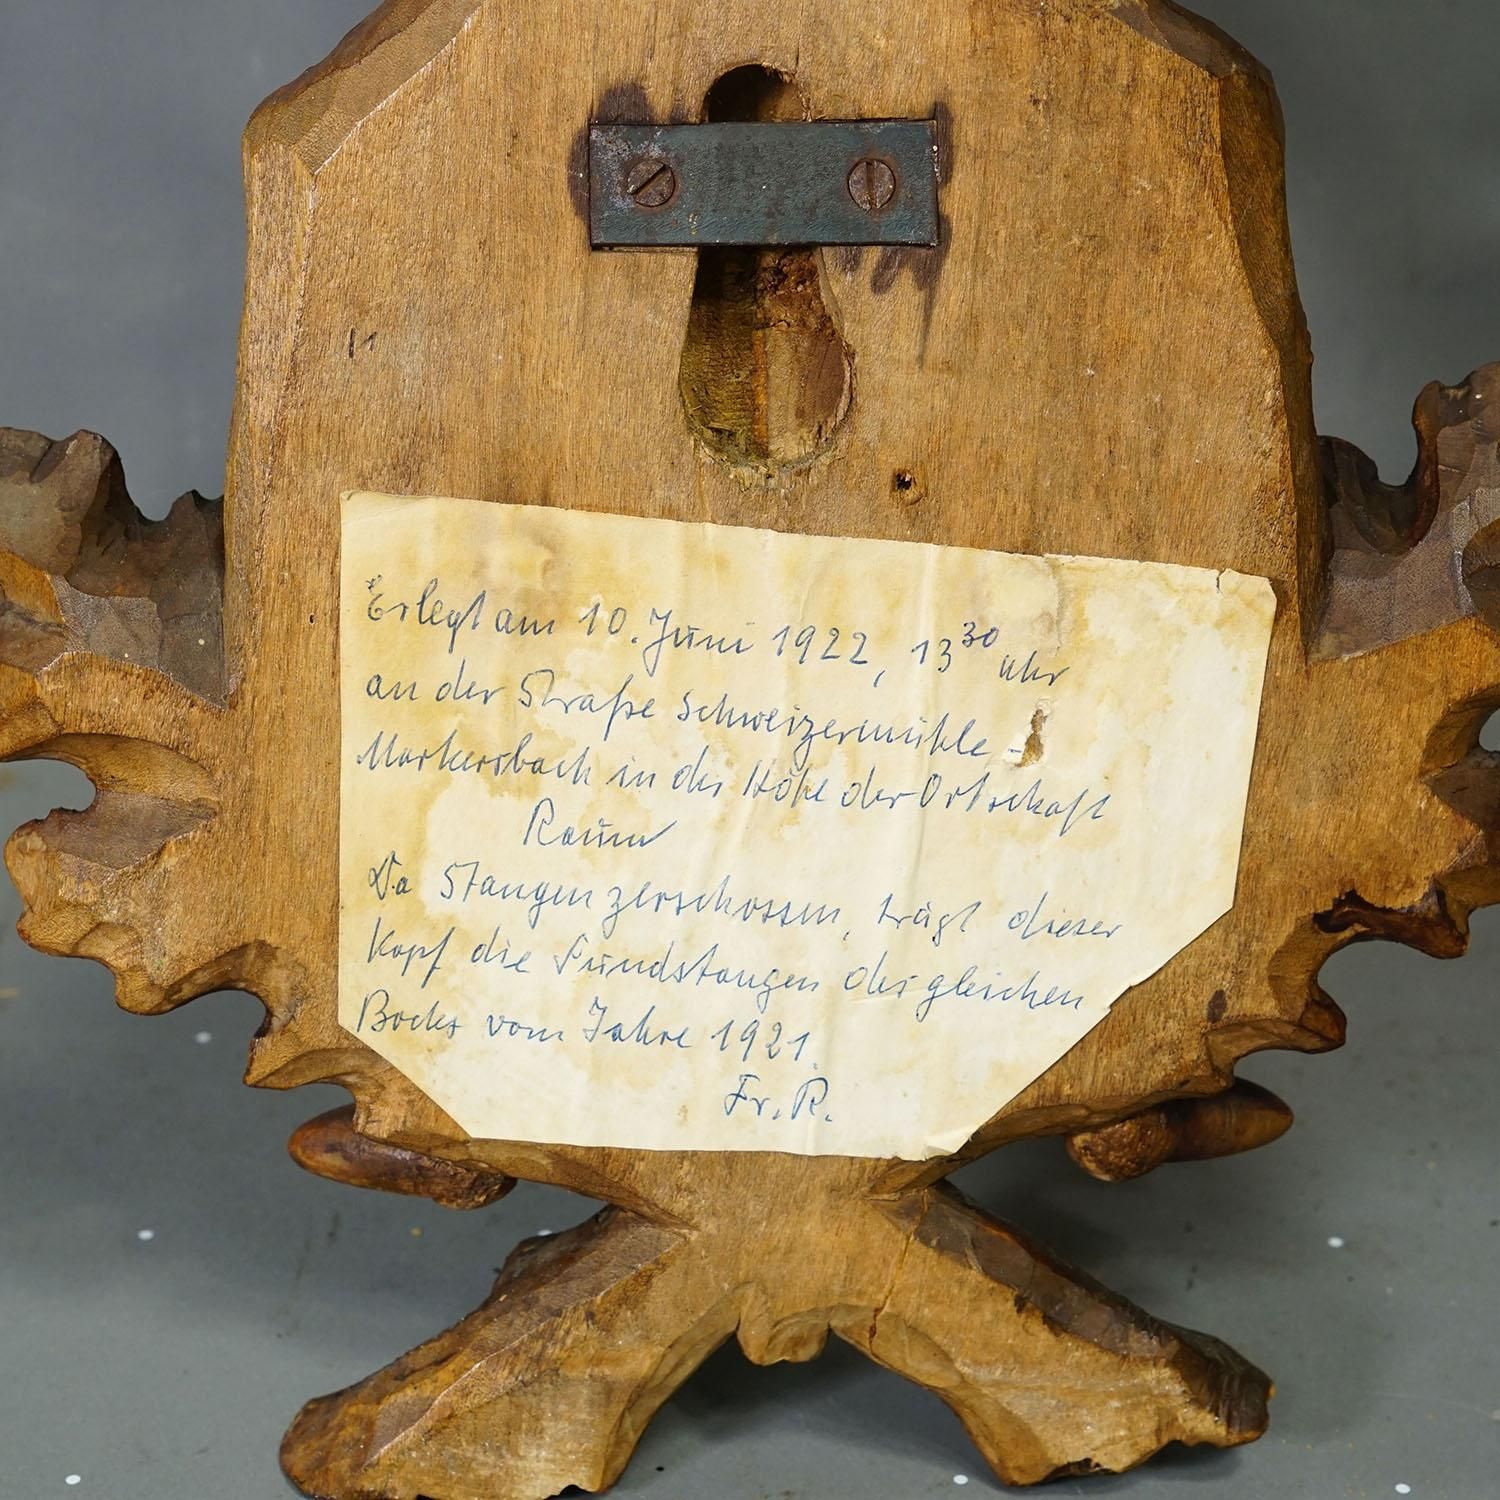 Erlegt am 10. Juni 1922, 13³⁰ Uhr
an der Straße Schweizermühle -
Markersbach in der Höhe der Ortschaft
Raum
Da Stangen zerschossen, trägt dieser
Kopf die Fundstangen des gleichen
Bockes vom Jahre 1921.
Fr. R.